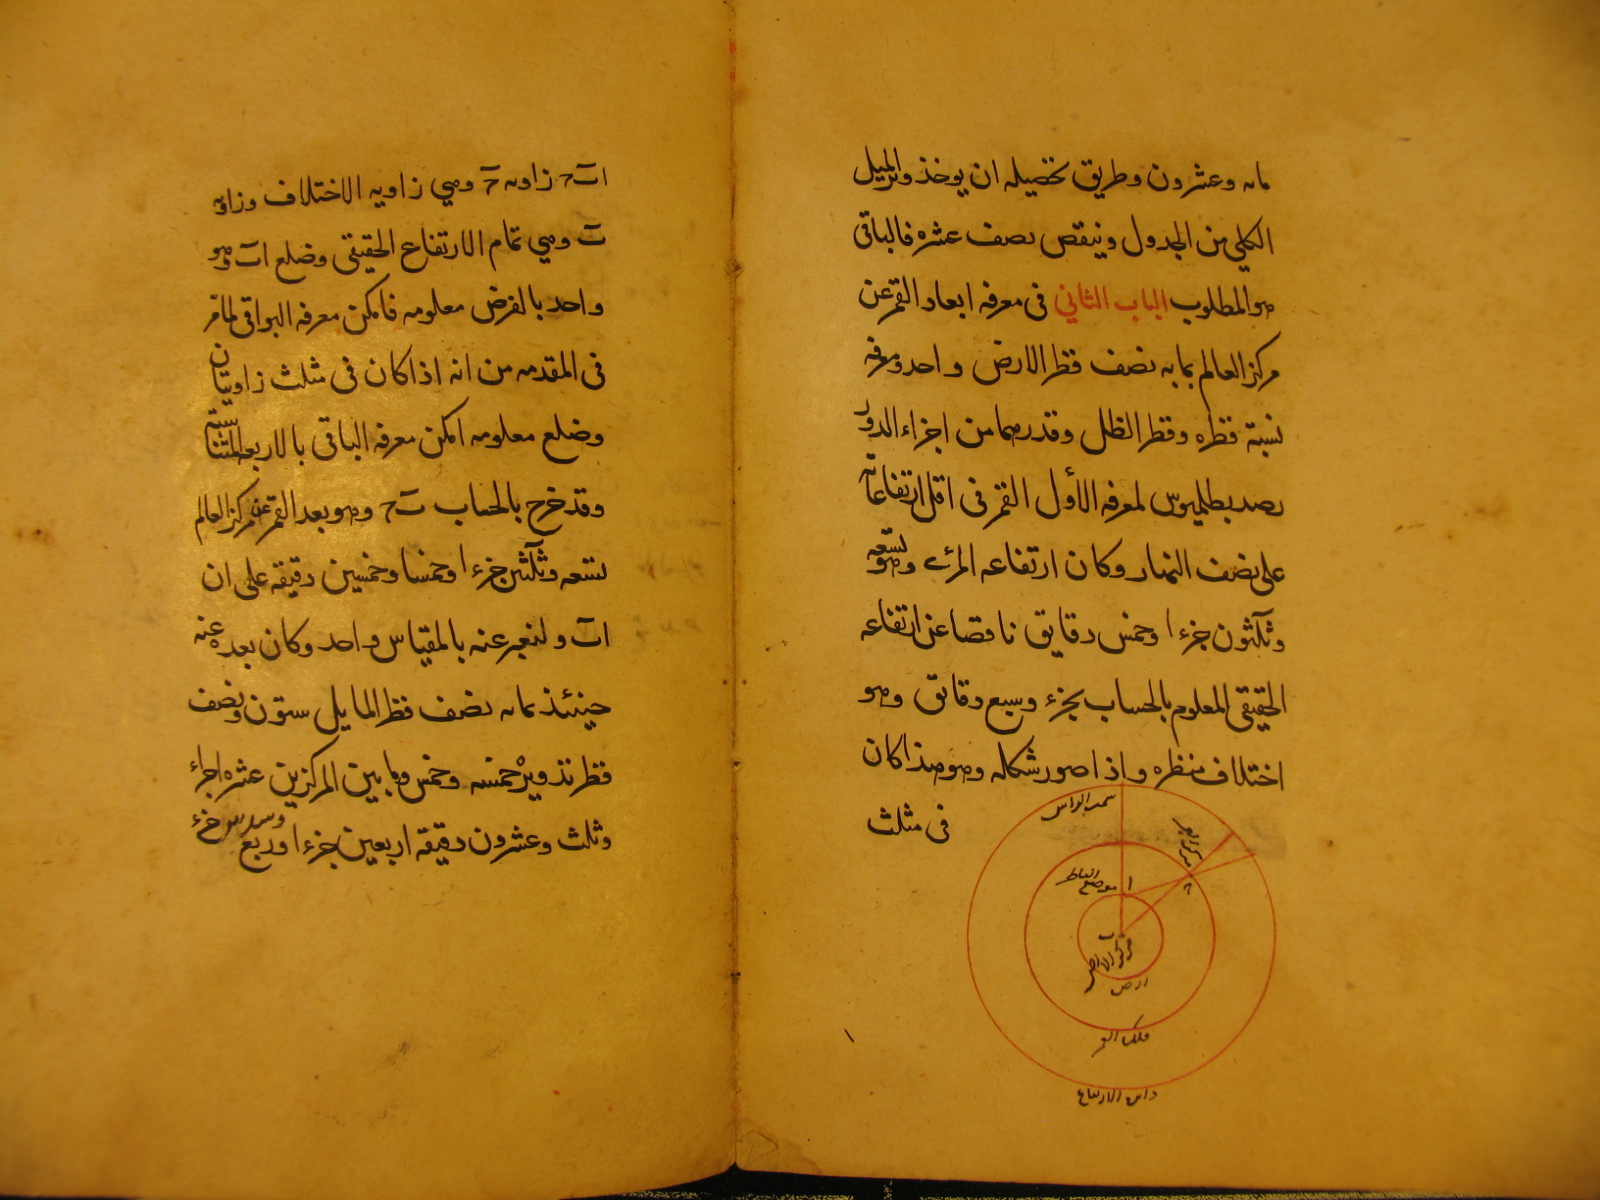 مايه وعشرون وطريق تحصيله ان يوخذ وتر الميل
الكلي من الجدول وينقص نصف عشره فالباقى
هو المطلوب الباب الثاني فى معرفه ابعاد القمر عن
مركز العالم بمابه نصف قطر الارض واحد ومعرفه
نسبة قطره وقطر الظل وقدرهما من اجزاء الدور
رصد بطلميوس لمعرفه الأول القمر فى اقل ارتفاعاته
على نصف النهار وكان ارتفاعه المرئ وهو تسعه
وثلثون جزءا وخمس دقايق ناقصا عن ارتفاعه
الحقيقى المعلوم بالحساب بجزء وسبع دقايق وهو
اختلاف منظره واذا صور شكله وهو هذا كان
فى مثلث
سمت الراس
مركز القمر
ح
ا موضع الناظر
ب
مركز الارض
الارض
فلك القمر
دايره الارتفاع
اب ح زاويه ح وهي زاويه الاختلاف وزاويه
ب وهي تمام الارتفاع الحقيقى وضلع اب وهو
واحد بالفرض معلومه فامكن معرفه البواقى لما مر
فى المقدمه من انه اذا كان فى مثلث زاويتان
وضلع معلومه امكن معرفه الباقى بالاربعه المتناسبة
وقد خرج بالحساب ب ح وهو بعد القمر عن مركز العالم
تسعه وثلثين جزءا وخمسا وخمسين دقيقه على ان
اب ولنعبر عنه بالمقياس واحد وكان بعده عنه
حينئذ بمابه نصف قطر المايل ستون ونصف
قطر تدويره خمسه وخمس وما بين المركزين عشره اجزاء
وثلث وعشرون دقيقة اربعين جزءا وربع وسدس جزء